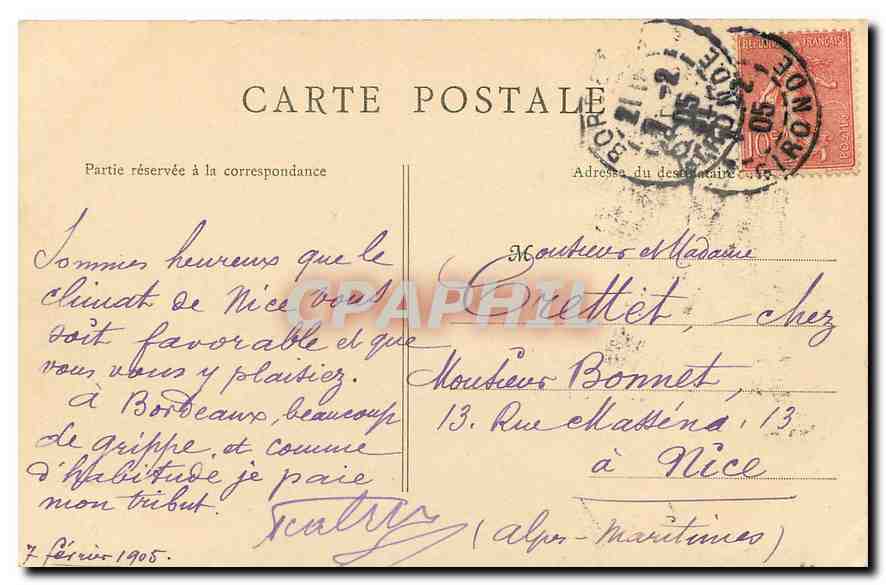 CARTE POSTALE
Partie réservée à la correspondance
Adresse du destinataire
Sommes heureux que le
climat de Nice vous
soit favorable et que
vous vous y plaisiez.
à Bordeaux, beaucoup
de grippe, et comme
d'habitude je paie
mon tribut.
7 février 1905.
Monsieur et Madame
Crettet, chez
Monsieur Bonnet,
13. Rue Masséna, 13
à Nice
(Alpes-Maritimes)
REPUBLIQUE FRANÇAISE
10c
POSTES
BORD
GIRONDE
05
GIRONDE
05
CPAPHIL